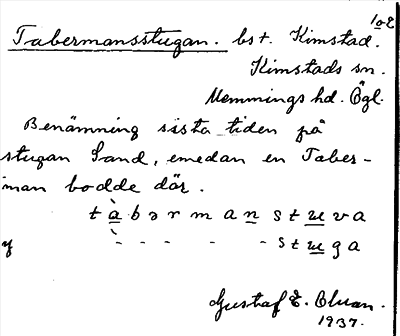 102
Tabermansstugan. bst. Kimstad.
Kimstads sn.
Memmings hd. Ögl.
Benämning sista tiden på
stugan Sand, emedan en Taber-
man bodde där.
tàbərmanstuva
y ` - - - - - stuga
Gustaf E. Bluan.
1937.